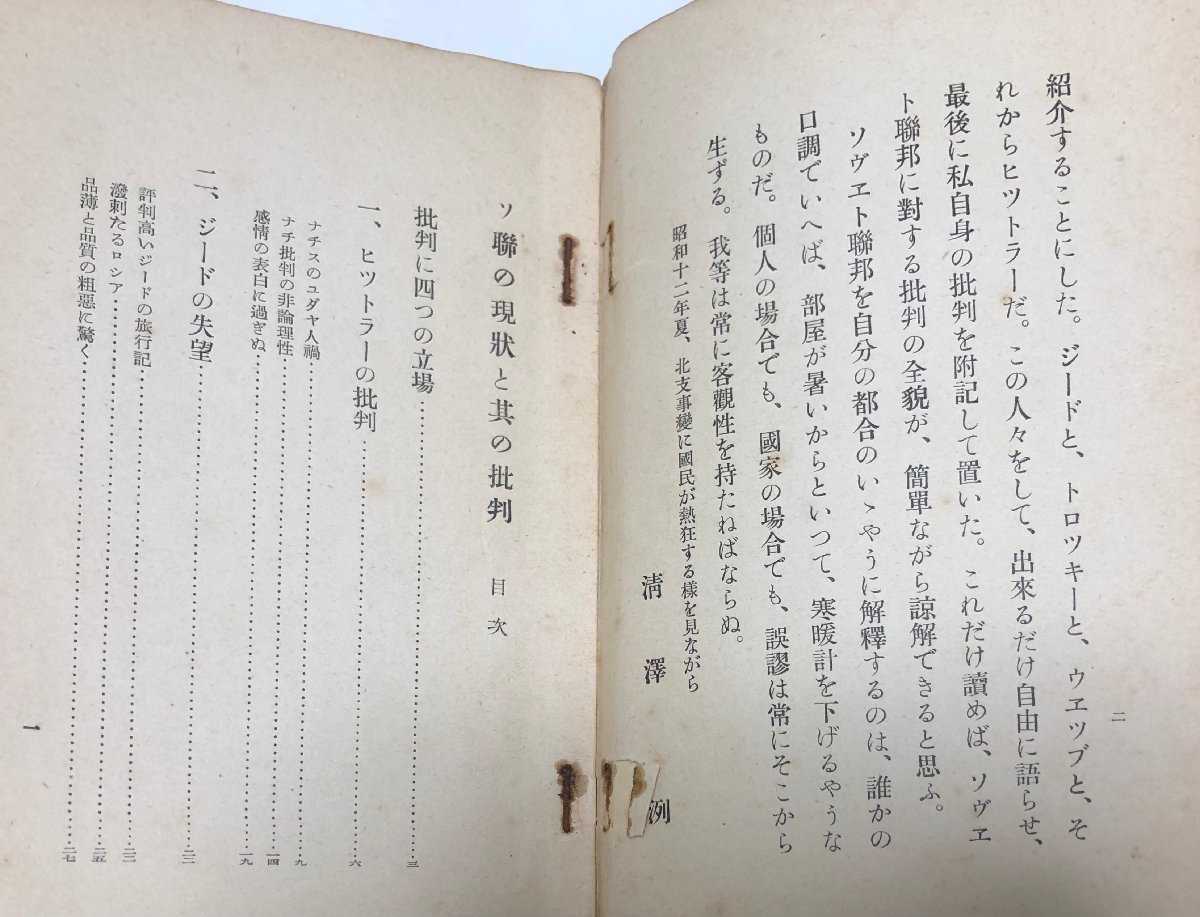 二
紹介することにした。ジードと、トロツキーと、ウエツブと、そ
れからヒツトラーだ。この人々をして、出來るだけ自由に語らせ、
最後に私自身の批判を附記して置いた。これだけ讀めば、ソヴエ
ト聯邦に對する批判の全貌が、簡單ながら諒解できると思ふ。
ソヴエト聯邦を自分の都合のいゝやうに解釋するのは、誰かの
口調でいへば、部屋が暑いからといつて、寒暖計を下げるやうな
ものだ。個人の場合でも、國家の場合でも、誤謬は常にそこから
生ずる。我等は常に客觀性を持たねばならぬ。
昭和十二年夏、北支事變に國民が熱狂する樣を見ながら
淸澤冽
ソ聯の現狀と其の批判 目次
批判に四つの立場……三
一、ヒットラーの批判……六
ナチスのユダヤ人禍……九
ナチ批判の非論理性……一四
感情の表白に過ぎぬ……一九
二、ジードの失望……二二
評判高いジードの旅行記……二二
潑剌たるロシア……二五
品薄と品質の粗惡に驚く……二七
一